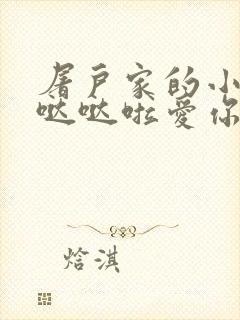 屠户家的小
哒哒啦爱你
焓淇